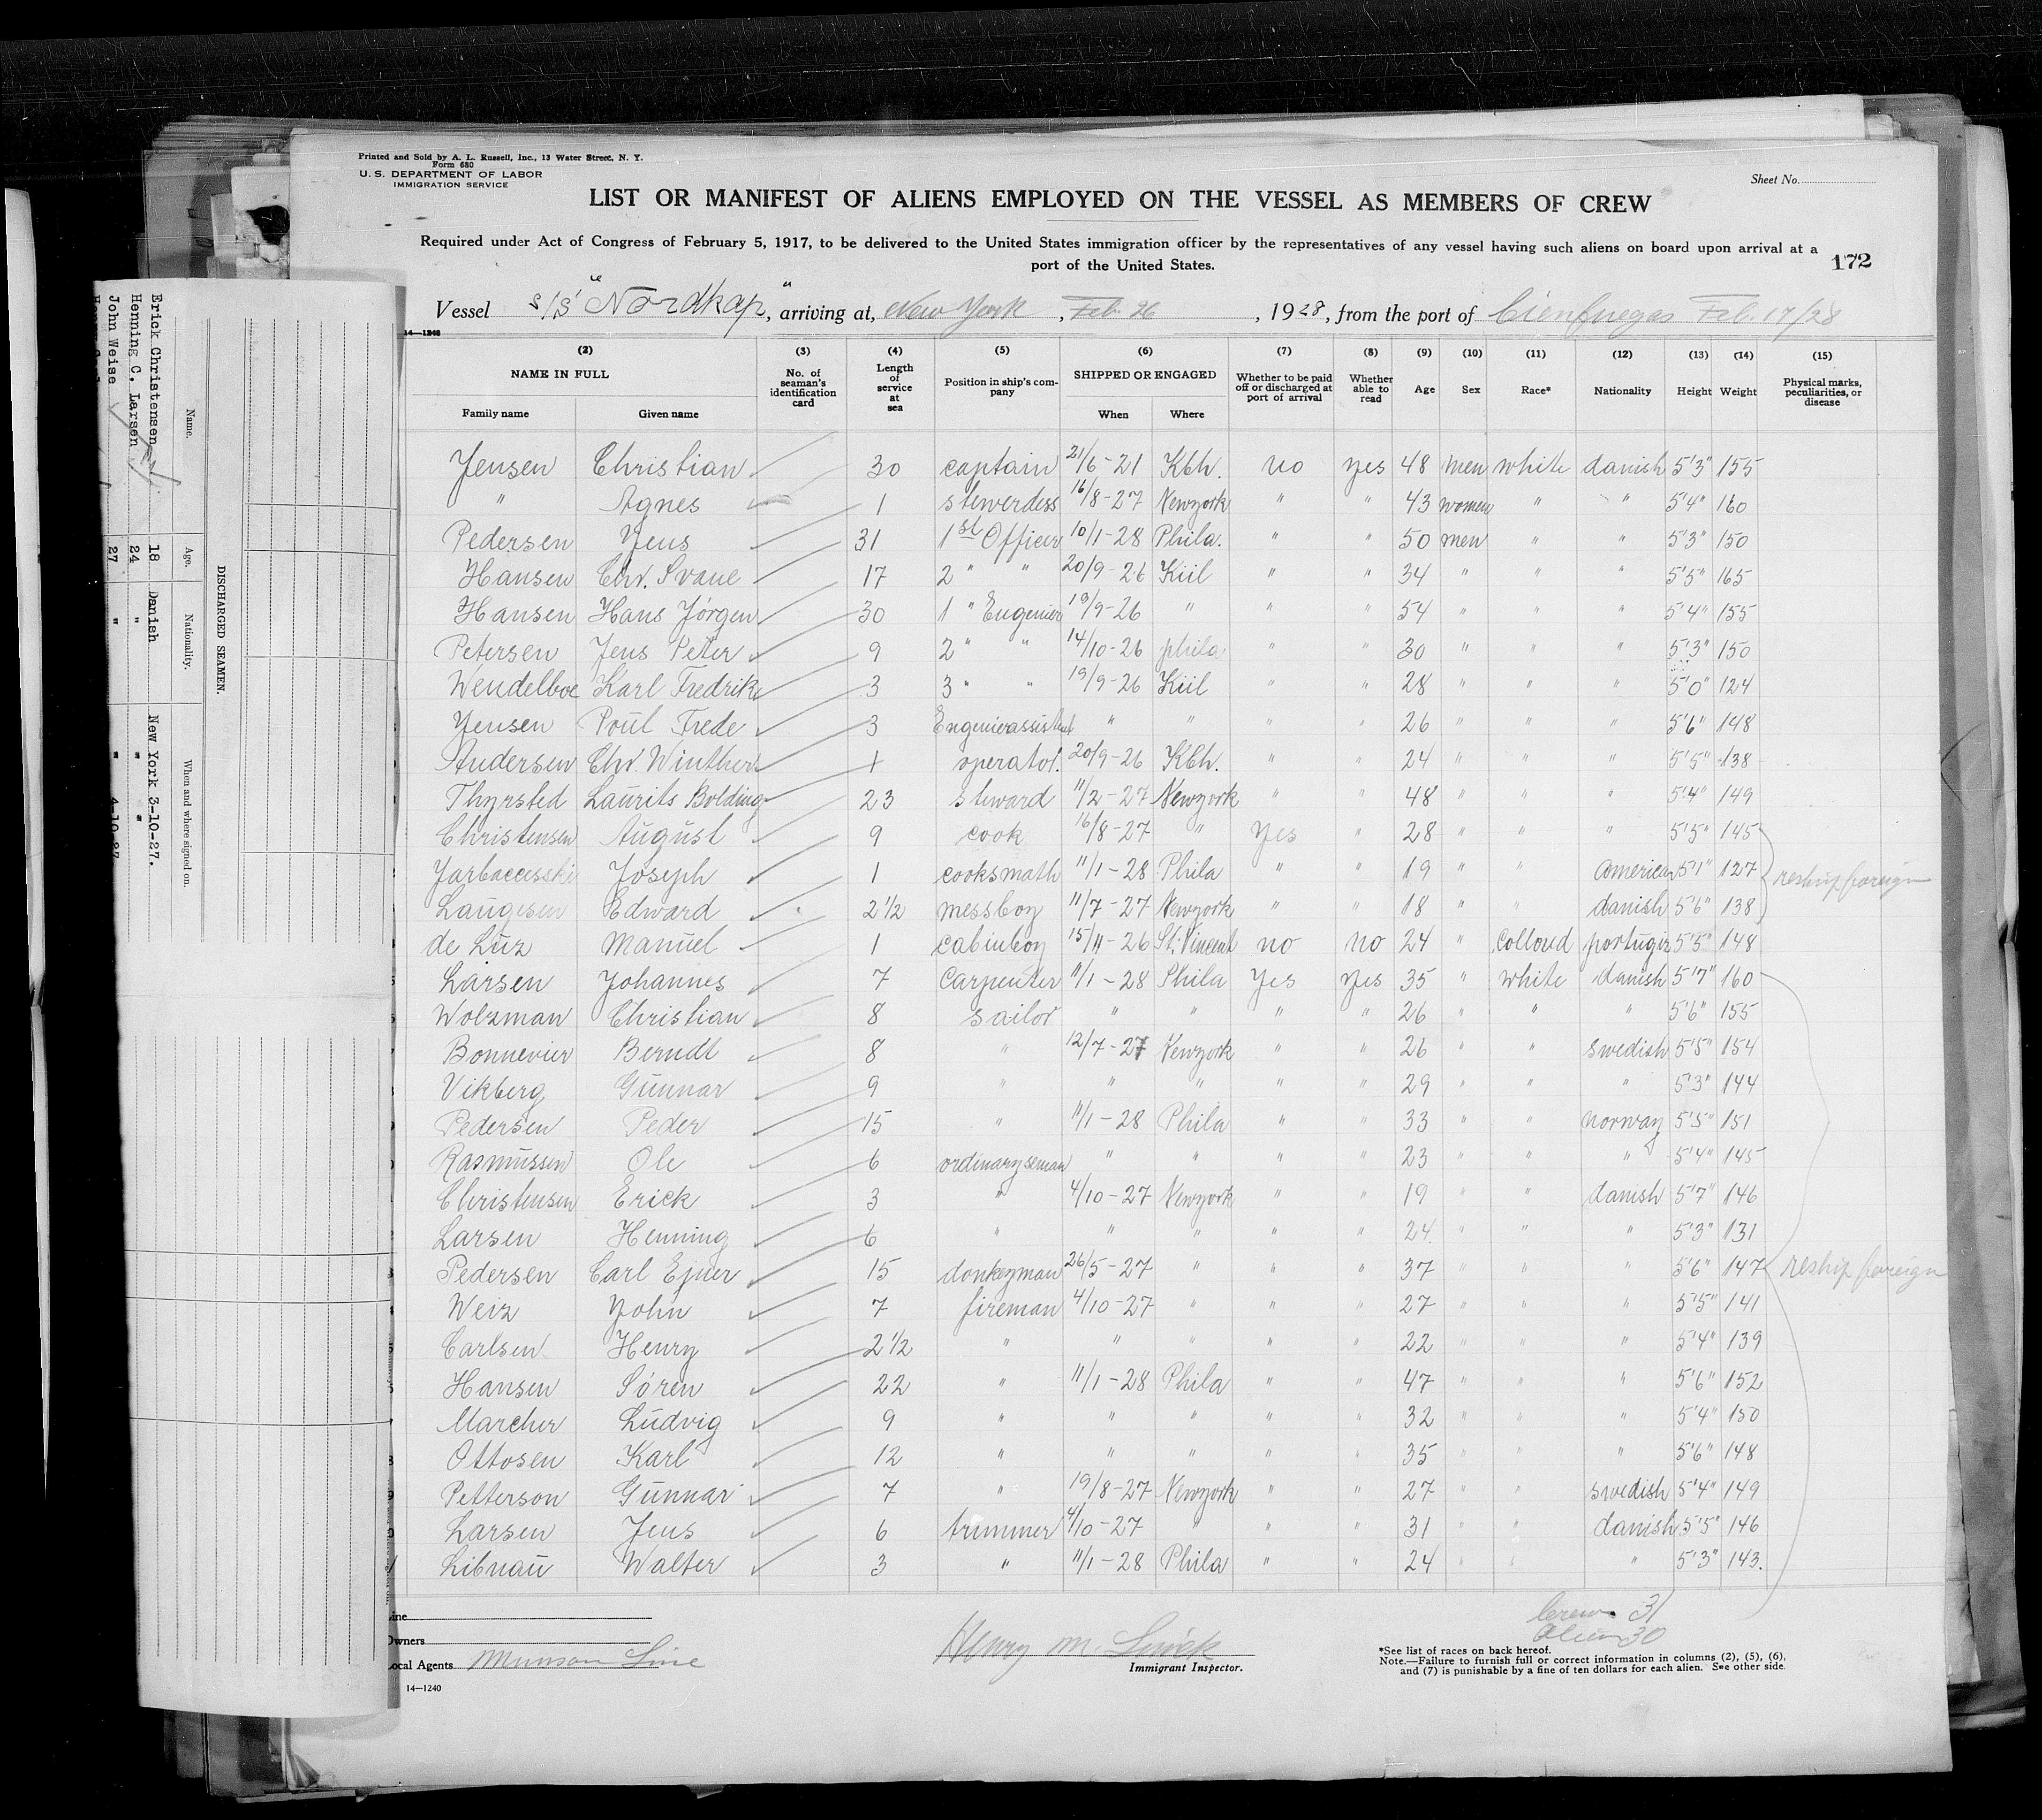 Printed and Sold by A. L. Russell, Inc., 13 Water Street, N. Y.
Form 680
U. S. DEPARTMENT OF LABOR
IMMIGRATION SERVICE
Sheet No.
LIST OR MANIFEST OF ALIENS EMPLOYED ON THE VESSEL AS MEMBERS OF CREW
Required under Act of Congress of February 5, 1917, to be delivered to the United States immigration officer by the representatives of any vessel having such aliens on board upon arrival at a
port of the United States.
172
Vessel s/s "Nordkap", arriving at, New York, Feb. 26, 1928, from the port of Cienfuegos Feb. 17/28
14—1240
(2) (3) (4) (5) (6) (7) (8) (9) (10) (11) (12) (13) (14) (15)
NAME IN FULL No. of seaman's identification card Length of service at sea Position in ship's company SHIPPED OR ENGAGED Whether to be paid off or discharged at port of arrival Whether able to read Age Sex Race* Nationality Height Weight Physical marks, peculiarities, or disease
Family name Given name When Where
Jensen Christian 30 captain 21/6-21 Kbh. no yes 48 men white danish 5'3" 155
" Agnes 1 stewerdess 16/8-27 Newyork " " 43 women " " 5'4" 160
Pedersen Jens 31 1st Officer 10/1-28 Phila. " " 50 men " " 5'3" 150
Hansen Chr. Svane 17 2 " " 20/9-26 Kiil " " 34 " " " 5'5" 165
Hansen Hans Jörgen 30 1 " Engenier 19/9-26 " " " 54 " " " 5'4" 155
Petersen Jens Peter 9 2 " " 14/10-26 phila " " 30 " " " 5'3" 150
Wendelboe Karl Fredrik 3 3 " " 19/9-26 Kiil " " 28 " " " 5'0" 124
Jensen Poul Frede 3 Engenierassistent " " " " 26 " " " 5'6" 148
Andersen Chr. Winther 1 operator. 20/9-26 Kbh. " " 24 " " " 5'5" 138
Thyrsted Laurits Bolding 23 steward 11/2-27 Newyork " " 48 " " " 5'4" 149
Christensen August 9 cook 16/8-27 " Yes " 28 " " " 5'5" 145
Joseph 1 cooksmath 11/1-28 Phila " " 19 " " American 5'1" 127 reship foreign
Laugesen Edward 2 1/2 messboy 11/7-27 Newyork " " 18 " " danish 5'6" 138
de Luz Manuel 1 cabinboy 15/11-26 St. Vincent no no 24 " Colloud portugis 5'5" 148
Larsen Johannes 7 Carpenter 11/1-28 Phila Yes Yes 35 " white danish 5'7" 160
Wolzman Christian 8 sailor " " " " 26 " " " 5'6" 155
Bonnevier Berndt 8 " 12/7-27 Newyork " " 26 " " swedish 5'5" 154
Vikberg Gunnar 9 " " " " " 29 " " " 5'3" 144
Pedersen Peder 15 " 11/1-28 Phila " " 33 " " norway 5'5" 151
Rasmussen Ole 6 ordinary seman " " " " 23 " " " 5'4" 145
Christensen Erick 3 " 4/10-27 Newyork " " 19 " " danish 5'7" 146
Larsen Henning 6 " " " " " 24 " " " 5'3" 131
Pedersen Carl Ejner 15 donkeyman 26/5-27 " " " 37 " " " 5'6" 147 reship foreign
Weiz John 7 fireman 4/10-27 " " " 27 " " " 5'5" 141
Carlsen Henry 2 1/2 " " " " " 22 " " " 5'4" 139
Hansen Sören 22 " 11/1-28 Phila " " 47 " " " 5'6" 152
Marcher Ludvig 9 " " " " " 32 " " " 5'4" 150
Ottosen Karl 12 " " " " " 35 " " " 5'6" 148
Petterson Gunnar 7 " 19/8-27 Newyork " " 27 " " swedish 5'4" 149
Larsen Jens 6 trimmer 4/10-27 " " " 31 " " danish 5'5" 146
Libnau Walter 3 " 11/1-28 Phila " " 24 " " " 5'3" 143.
Crew 31
Alien 30
Line
Owners
Local Agents Munson Line
Henry M.
Immigrant Inspector.
*See list of races on back hereof.
Note.—Failure to furnish full or correct information in columns (2), (5), (6),
and (7) is punishable by a fine of ten dollars for each alien. See other side.
14—1240
DISCHARGED SEAMEN.
Name. Age. Nationality. When and where signed on.
Erick Christensen 18 Danish New York 3-10-27.
Henning C. Larsen 24 " " "
John Weise 27 " " 4-10-27